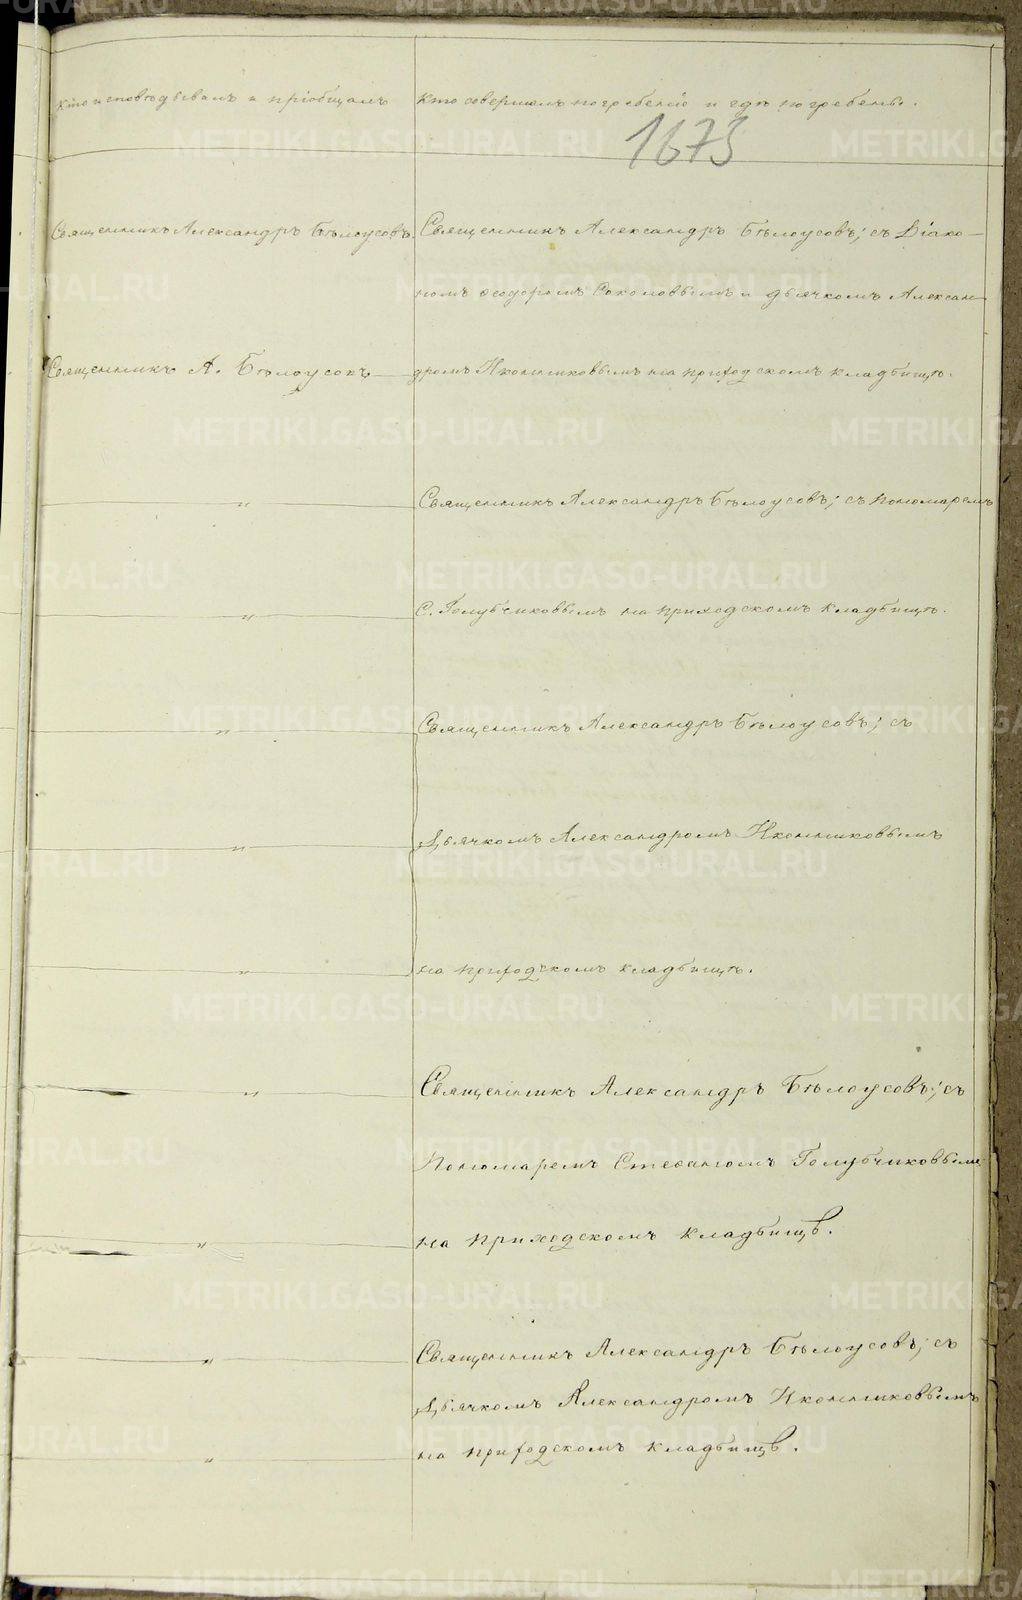 Кто исповѣдывалъ и пріобщалъ
Кто совершалъ погребеніе и гдѣ погребены.
1673
Священникъ Александръ Бѣлоусовъ.
Священникъ Александръ Бѣлоусовъ; съ Діако-
номъ Ѳеодоромъ Соколовымъ и дьячкомъ Алексан-
Священникъ А. Бѣлоусовъ
дромъ Иконниковымъ на приходскомъ кладбищѣ.
"
Священникъ Александръ Бѣлоусовъ; съ Пономаремъ
"
С. Голубчиковымъ на приходскомъ кладбищѣ.
"
Священникъ Александръ Бѣлоусовъ; съ
"
Дьячкомъ Александромъ Иконниковымъ
"
на приходскомъ кладбищѣ.
"
Священникъ Александръ Бѣлоусовъ; съ
Пономаремъ Стефаномъ Голубчиковымъ
"
на приходскомъ кладбищѣ.
"
Священникъ Александръ Бѣлоусовъ; съ
Дьячкомъ Александромъ Иконниковымъ
"
на приходскомъ кладбищѣ.
METRIKI.GASO-URAL.RU